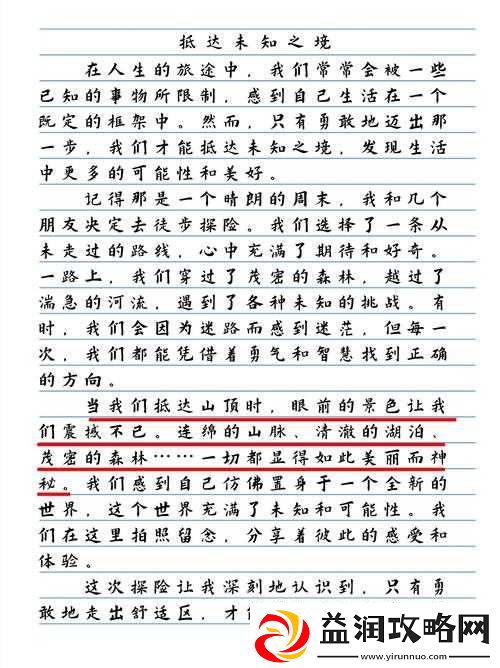 抵达未知之境
在人生的旅途中，我们常常会被一些
已知的事物所限制，感到自己生活在一个
既定的框架中。然而，只有勇敢地迈出那
一步，我们才能抵达未知之境，发现生活
中更多的可能性和美好。
记得那是一个晴朗的周末，我和几个
朋友决定去徒步探险。我们选择了一条从
未走过的路线，心中充满了期待和好奇。
一路上，我们穿过了茂密的森林，越过了
湍急的河流，遇到了各种未知的挑战。有
时，我们会因为迷路而感到迷茫，但每一
次，我们都能凭借着勇气和智慧找到正确
的方向。
当我们抵达山顶时，眼前的景色让我
们震撼不已。连绵的山脉、清澈的湖泊、
茂密的森林……一切都显得如此美丽而神
秘。我们感到自己仿佛置身于一个全新的
世界，这个世界充满了未知和可能性。我
们在这里拍照留念，分享着彼此的感受和
体验。
这次探险让我深刻地认识到，只有勇
敢地走出舒适区，才
益润攻略网
www.yirunnuo.com